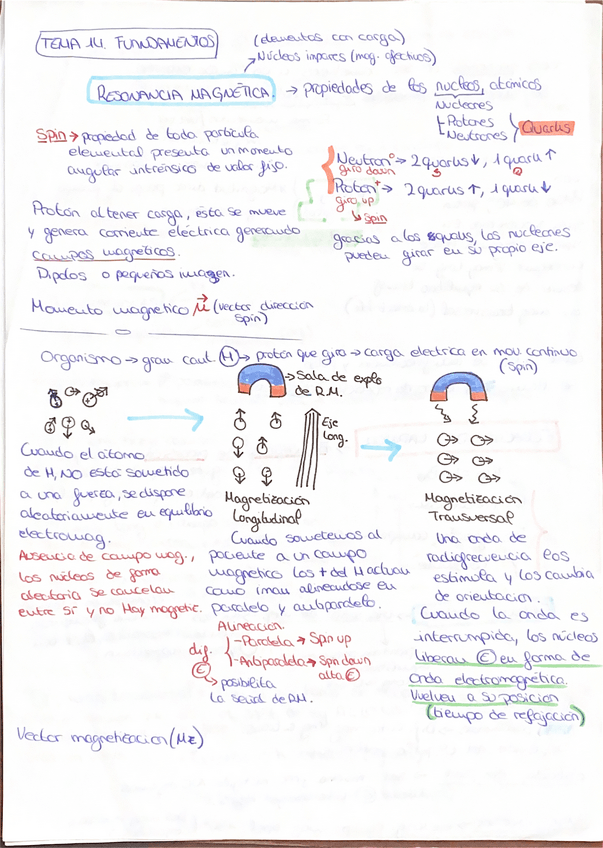 TEMA 14. FUNDAMENTOS
(elementos con carga)
Núcleos impares (mag. efectivos)
RESONANCIA MAGNÉTICA. → propiedades de los nucleos atómicos
Nucleones
Protones
Neutrones
Quarks
Spin → propiedad de toda partícula
elemental presenta un momento
angular intrínsico de valor fijo.
Neutron⁰ → 2 quarks ↓, 1 quark ↑
giro down
Protón⁺ → 2 quarks ↑, 1 quark ↓
giro up
↳ spin
gracias a los quarks, los nucleones
pueden girar en su propio eje.
Protón al tener carga, ésta se mueve
y genera corriente eléctrica generando
campos magnéticos.
Dipolos o pequeños imagen.
Momento magnetico μ⃗ (vector dirección
spin)
Organismo → gran cant. H → protón que gira → carga electrica en mov. continuo
(spin)
→ Sala de explo
de R.M.
Eje
Long.
Cuando el átomo
de H, NO está sometido
a una fuerza, se dispone
aleatoriamente en equilibrio
electromag.
Ausencia de campo mag.,
los núcleos de forma
aleatoria se cancelan
entre sí y no Hay magnetic.
Magnetización
Longitudinal
Cuando sometemos al
paciente a un campo
magnetico los + del H actuan
como iman alineandose en
paralelo y antiparalelo.
Alineación.
dif.
E
- Paralela → Spin up
- Antiparalela → Spin down
alta E
↳ posibilita
la señal de RM.
Magnetización
Transversal
Una onda de
radiofrecuencia los
estimula y los cambia
de orientación.
Cuando la onda es
interrumpida, los núcleos
liberan E en forma de
onda electromagnética.
Vuelven a su posición
(tiempo de relajación)
Vector magnetizacion (Mz)